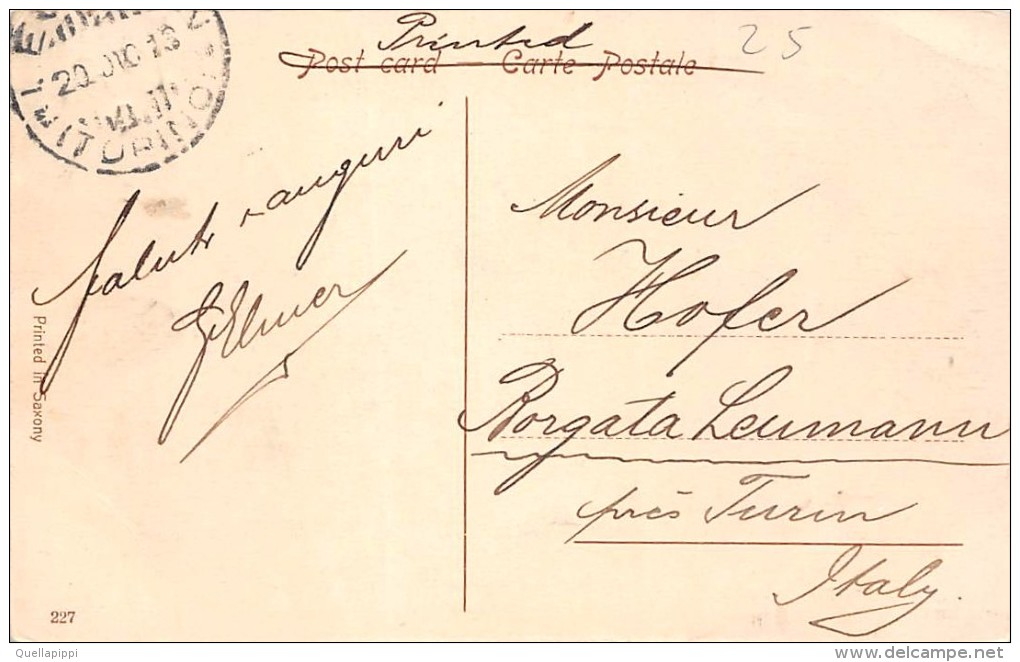 Printed
25
Post card Carte Postale
20 DIC 13
(TORINO)
Saluti e auguri
Elmer
Monsieur
Hofer
Borgata Leumann
près Turin
Italy.
Printed in Saxony
227
Quellapippi
delcampe.net